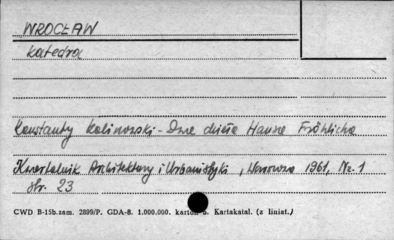 WROCŁAW
Katedra
Konstanty Kalinowski - Dwa dzieła Hansa Fröhlicha
Kwartalnik Architektury i Urbanistyki, Warszawa 1961, Nr. 1
str. 23
CWD B-15b.zam. 2899/P. GDA-8. 1.000.000. karton b. Kartakatal. (z liniat.)